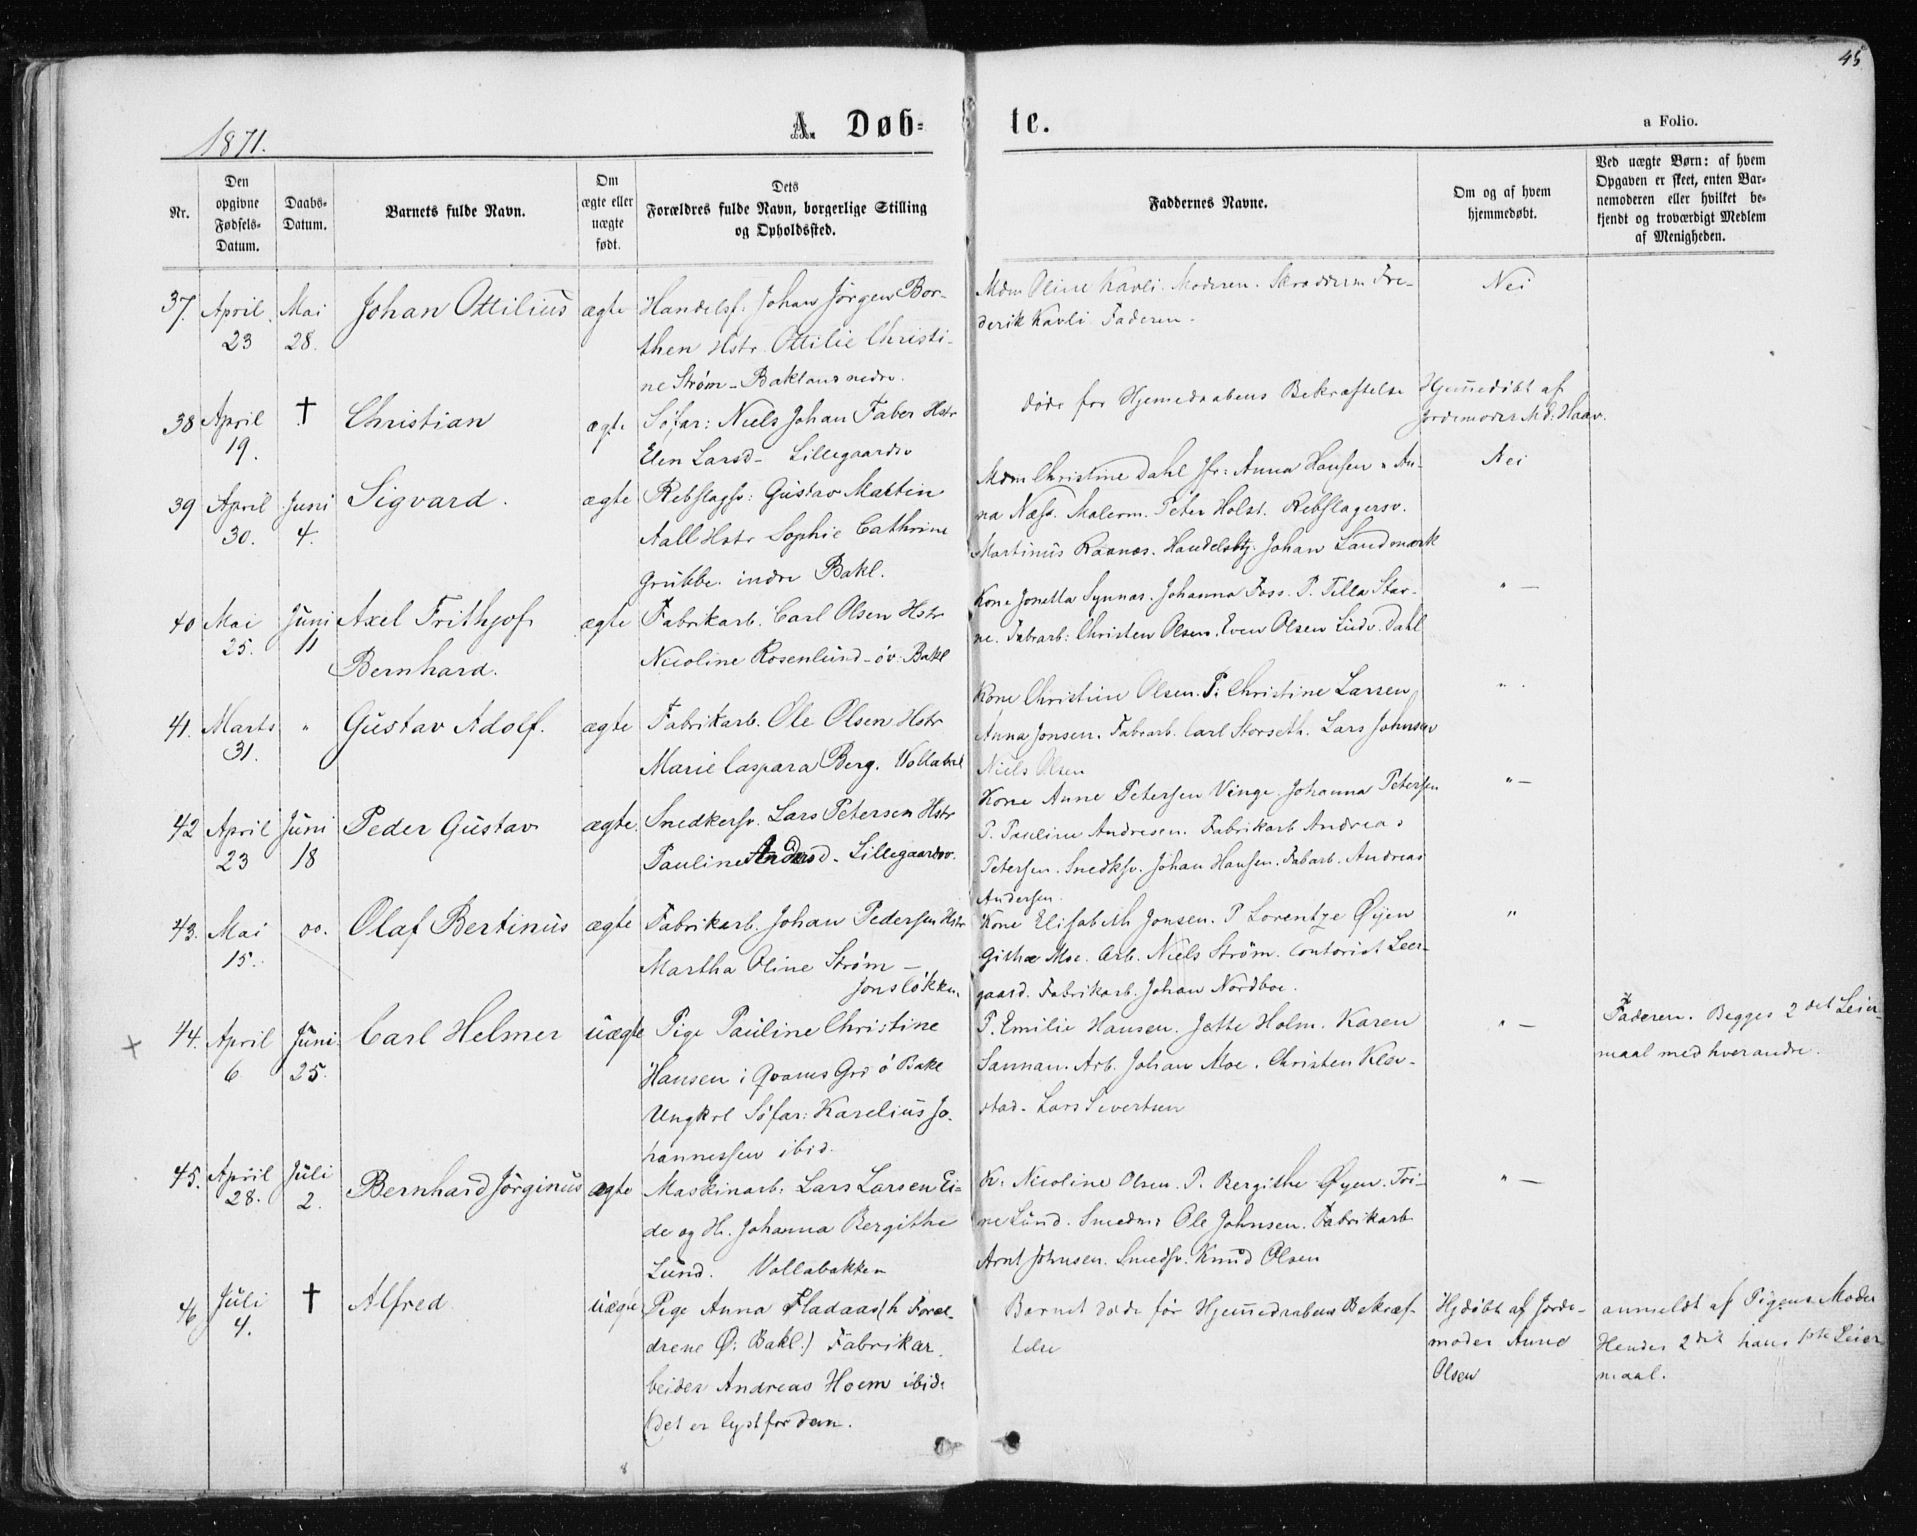 45
1871.
A. Døb-
te.
a Folio.
Nr.
Den opgivne Fødsels-Datum.
Daabs-Datum.
Barnets fulde Navn.
Om ægte eller uægte født.
Dets Forældres fulde Navn, borgerlige Stilling og Opholdssted.
Faddernes Navne.
Om og af hvem hjemmedøbt.
Ved uægte Børn: af hvem Opgaven er skeet, enten Barnemoderen eller hvilket bekjendt og troværdigt Medlem af Menigheden.
37. April 23 Mai 28. Johan Ottilius ægte
Handelsf: Johan Jörgen Bor-
then Hstr. Ottilie Christi-
ne Strøm - Baklans nedre.
Mdm Oline Kavli. Moderen. Skrædderm Fre-
derik Kavli Faderen.
Nei
38 April 19. † Christian ægte
Söfar: Niels Johan Faber Hstr
Elen Larsd - Lillegaardsv
døde før Hjemedaabens Bekræftelse
Hjemedöbt af
Jordemoder Md: Haav.
39 April 30. Juni 4. Sigvard. ægte
Rebslagsv: Gustav Martin
Aall Hstr Sophie Cathrine
Grubbe. indre Bakl.
Mdm Christine Dahl Jfr: Anna Hansen. An-
na Næss. Malerm. Peter Holst. Rebslagersv.
Martinus Raanes. Handelsbtj. Johan Landmark
Nei
40 Mai 25. Juni 11 Axel Frithjof
Bernhard. ægte
Fabrikarb. Carl Olsen Hstr
Nicoline Rosenlund - öv: Bakl
Kone Jonetta Synnas. Johanna Foss. P. Tilla Stav-
ne. Fabrarb: Christen Olsen. Even Olsen Ludv. Dahl
" —
41. Marts 31. " Gustav Adolf. ægte
Fabrikarb. Ole Olsen Hstr
Marie Caspara Berg. Vollabak
Kone Christine Olsen. P. Christine Larsen
Anna Jonsen. Fabrarb. Carl Storseth. Lars Johnsen
Niels Olsen
"
42 April 23 Juni 18 Peder Gustav ægte.
Snedkersv. Lars Petersen Hstr
Pauline Andersd - Lillegaardsv.
Kone Anne Petersen Vinge. Johanna Petersen
P. Pauline Andresen. Fabrikarb Andreas
Petersen. Snedksv. Johan Hansen. Fabarb. Andreas
Andersen.
" —
43. Mai 15. do. Olaf Bertinus ægte
Fabrikarb. Johan Pedersen Hstr
Martha Oline Strøm —
Jonslökken.
Kone Elisabeth Jonsen. P Lorentze Øyen
Githa Moe. Arb. Niels Strøm. Contorist Leer-
gaard. Fabrikarb. Johan Nordboe.
"
× 44. April 6 Juni 25. Carl Helmer uægte
Pige Pauline Christine
Hansen i Qvams Grd ö Bakl
Ungkrl Söfar: Karelius Jo-
hannessen ibid.
P. Emilie Hansen. Jette Holm. Karen
Sannan. Arb. Johan Moe. Christen Klev-
stad. Lars Sivertsen
" —
Faderen. Begges 2det Leier-
maal med hverandre.
45. April 28. Juli 2. Bernhard Jörginus ægte
Maskinarb: Lars Larsen Ei-
de og H. Johanna Bergithe
Lund. Vollabakken
K. Nicoline Olsen. P. Bergithe Øyen. Tri-
ne Lund. Smedm: Ole Johnsen. Fabrikarb
Arnt Johnsen. Smedsv. Knud Olsen
" —
46 Juli 4. † Alfred uægte
Pige Anna Fladaas (h Foræl-
drene Ø: Bakl.) Fabrikar-
beider Andreas Hoem ibid.
(det er lyst for dem.
Barnet døde før Hjemedaabens Bekræf-
telse
Hjdöbt af Jorde-
moder Anne
Olsen
anmeldt af Pigens Moder
Hendes 2det hans 1ste Leier-
maal.
8